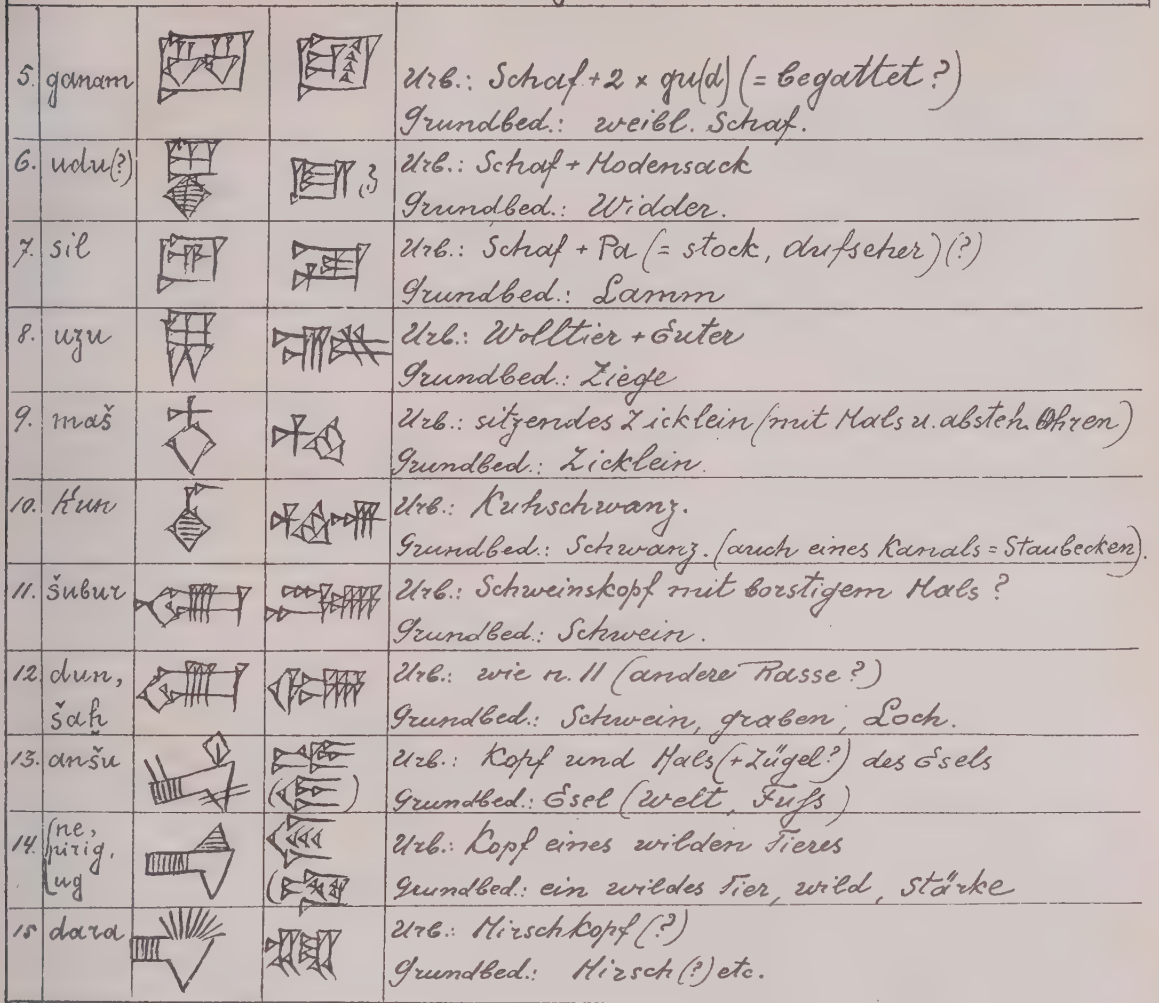 5. ganam Urb.: Schaf + 2 x gu(d) (= begattet?)
Grundbed.: weibl. Schaf.
6. udu(?) Urb.: Schaf + Hodensack
Grundbed.: Widder.
7. sil Urb.: Schaf + Pa (= stock, Aufseher) (?)
Grundbed.: Lamm
8. uzu Urb.: Wolltier + Euter
Grundbed.: Ziege
9. maš Urb.: sitzendes Zicklein (mit Hals u. absteh. Ohren)
Grundbed.: Zicklein.
10. Kun Urb.: Kuhschwanz.
Grundbed.: Schwanz. (auch eines Kanals = Staubecken).
11. šubur Urb.: Schweinskopf mit borstigem Hals?
Grundbed.: Schwein.
12. dun, Urb.: wie n. 11 (andere Rasse?)
šaḫ Grundbed.: Schwein, graben, Loch.
13. anšu Urb.: Kopf und Hals (+Zügel?) des Esels
Grundbed.: Esel (Welt, Fuß)
14. ne, Urb.: Kopf eines wilden Tieres
pirig,
ug Grundbed.: ein wildes Tier, wild, Stärke
15 dara Urb.: Hirschkopf (?)
Grundbed.: Hirsch (?) etc.